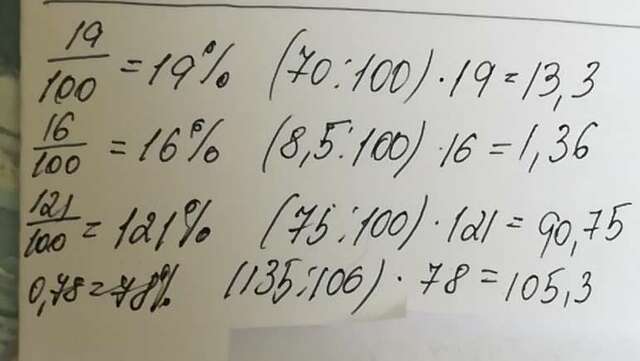 19/100 = 19% (70:100)·19=13,3
16/100 = 16% (8,5:100)·16=1,36
121/100 = 121% (75:100)·121=90,75
0,78=78% (135:106)·78=105,3